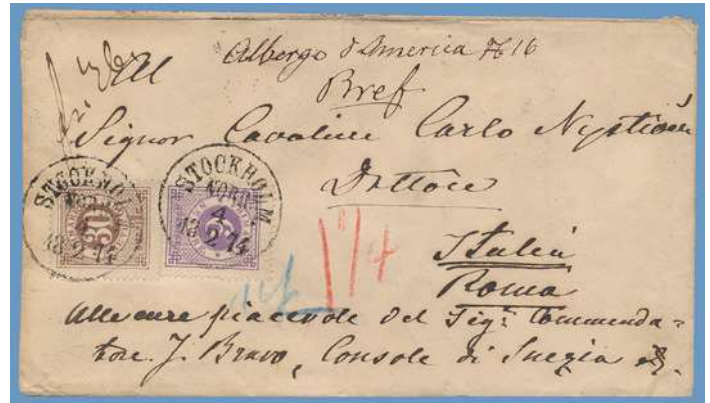 Albergo d'America № 16
All
Bref
Signor Cavaliere Carlo Nyström
Dottore
Italia
Roma
Alle cure piacevole del Sigr. Commenda=
tore. J. Bravo, Console di Suezia
STOCKHOLM
NORR
4
13 2 74
30
STOCKHOLM
NORR
4
13 2 74